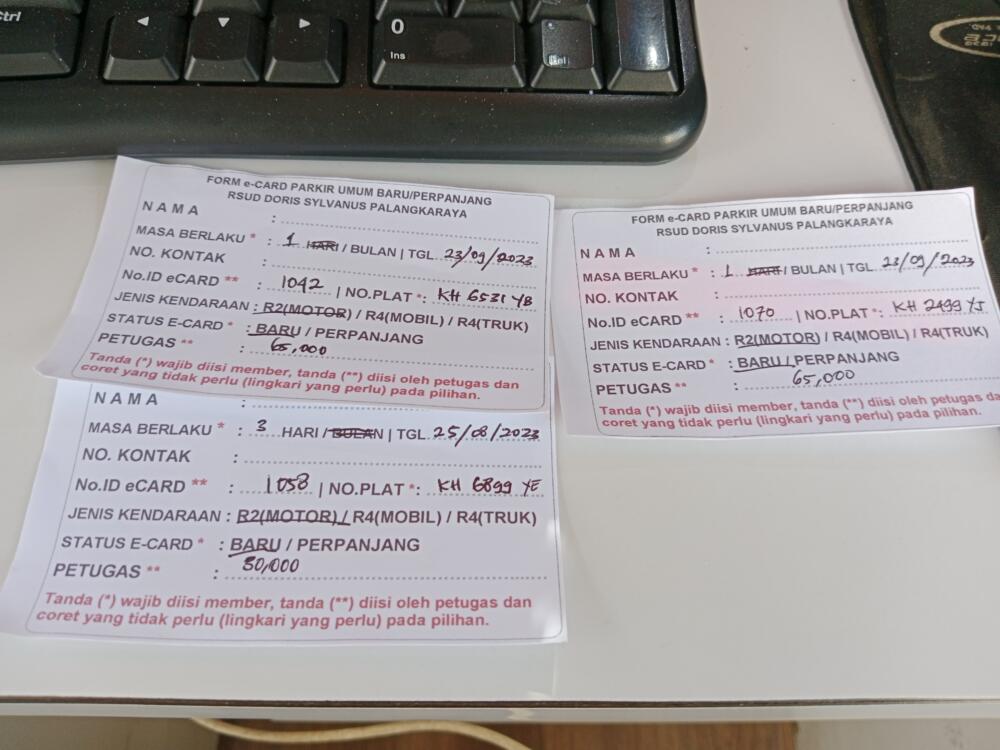 Ctrl
0
Ins
FORM e-CARD PARKIR UMUM BARU/PERPANJANG
RSUD DORIS SYLVANUS PALANGKARAYA
NAMA :
MASA BERLAKU * : 1 HARI / BULAN | TGL. 23/09/2023
NO. KONTAK :
No.ID eCARD ** : 1042 | NO.PLAT *: KH 6531 YB
JENIS KENDARAAN : R2(MOTOR) / R4(MOBIL) / R4(TRUK)
STATUS E-CARD * : BARU / PERPANJANG
PETUGAS ** : 65,000
Tanda (*) wajib diisi member, tanda (**) diisi oleh petugas dan
coret yang tidak perlu (lingkari yang perlu) pada pilihan.
NAMA :
MASA BERLAKU * : 3 HARI / BULAN | TGL. 25/08/2023
NO. KONTAK :
No.ID eCARD ** : 1058 | NO.PLAT *: KH 6899 YE
JENIS KENDARAAN : R2(MOTOR) / R4(MOBIL) / R4(TRUK)
STATUS E-CARD * : BARU / PERPANJANG
PETUGAS ** : 30,000
Tanda (*) wajib diisi member, tanda (**) diisi oleh petugas dan
coret yang tidak perlu (lingkari yang perlu) pada pilihan.
FORM e-CARD PARKIR UMUM BARU/PERPANJANG
RSUD DORIS SYLVANUS PALANGKARAYA
NAMA :
MASA BERLAKU * : 1 HARI / BULAN | TGL. 23/09/2023
NO. KONTAK :
No.ID eCARD ** : 1070 | NO.PLAT *: KH 2499
JENIS KENDARAAN : R2(MOTOR) / R4(MOBIL) / R4(TRUK)
STATUS E-CARD * : BARU / PERPANJANG
PETUGAS ** : 65,000
Tanda (*) wajib diisi member, tanda (**) diisi oleh petugas
coret yang tidak perlu (lingkari yang perlu) pada pilihan.